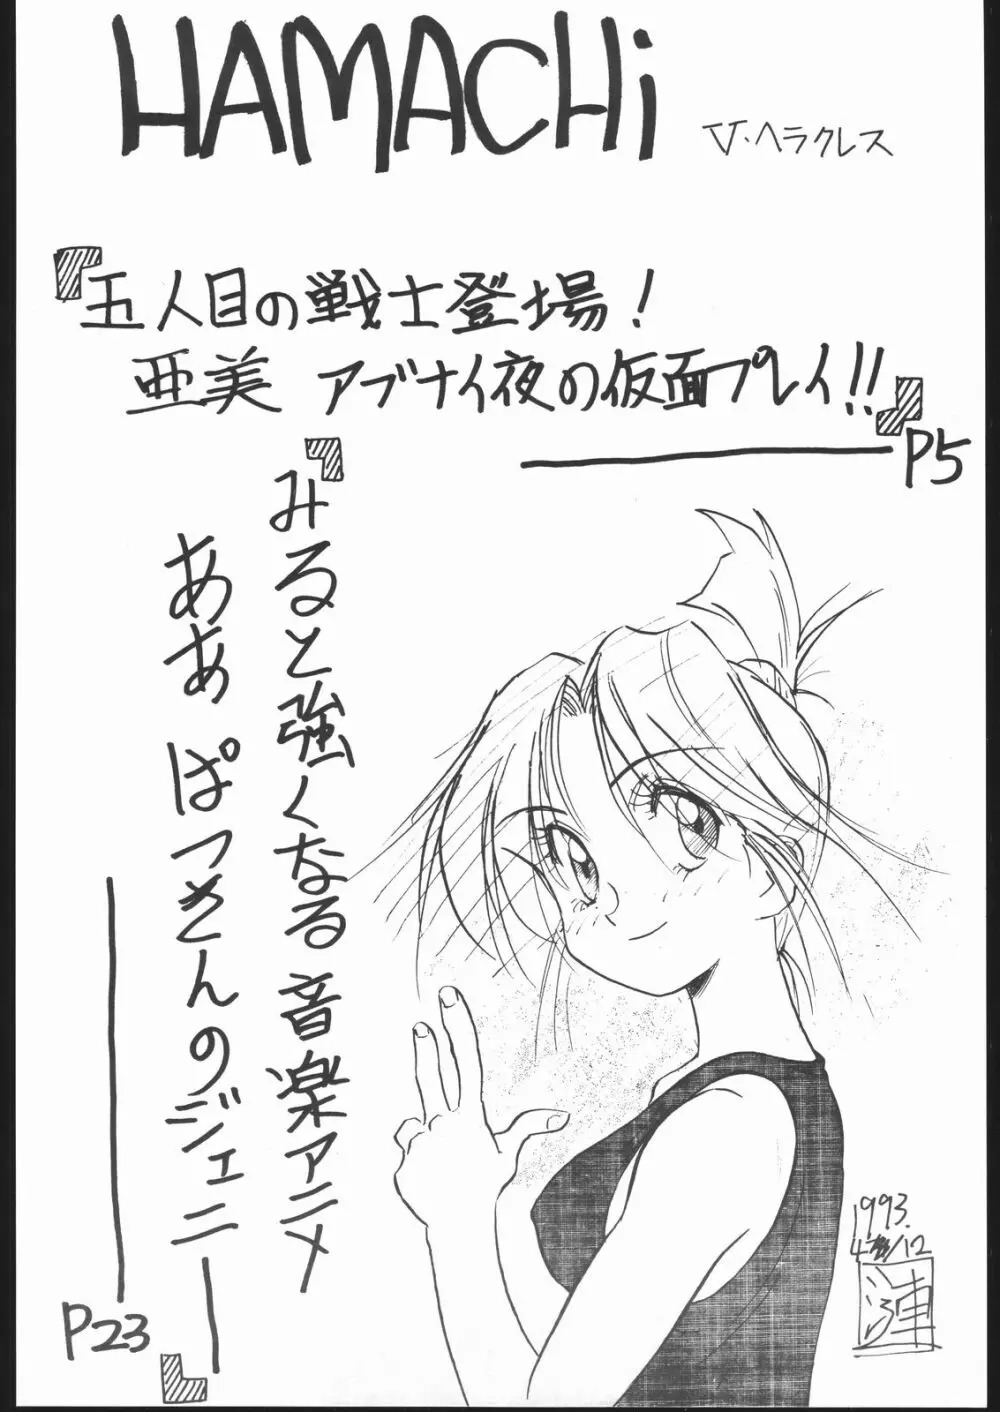 HAMACHi
V・ヘラクレス
『五人目の戦士登場!
亜美 アブナイ夜の仮面プレイ!!』
P5
『みると強くなる音楽アニメ
ああ ぱっさんのジェニー』
P23
1993.
4/12
漣